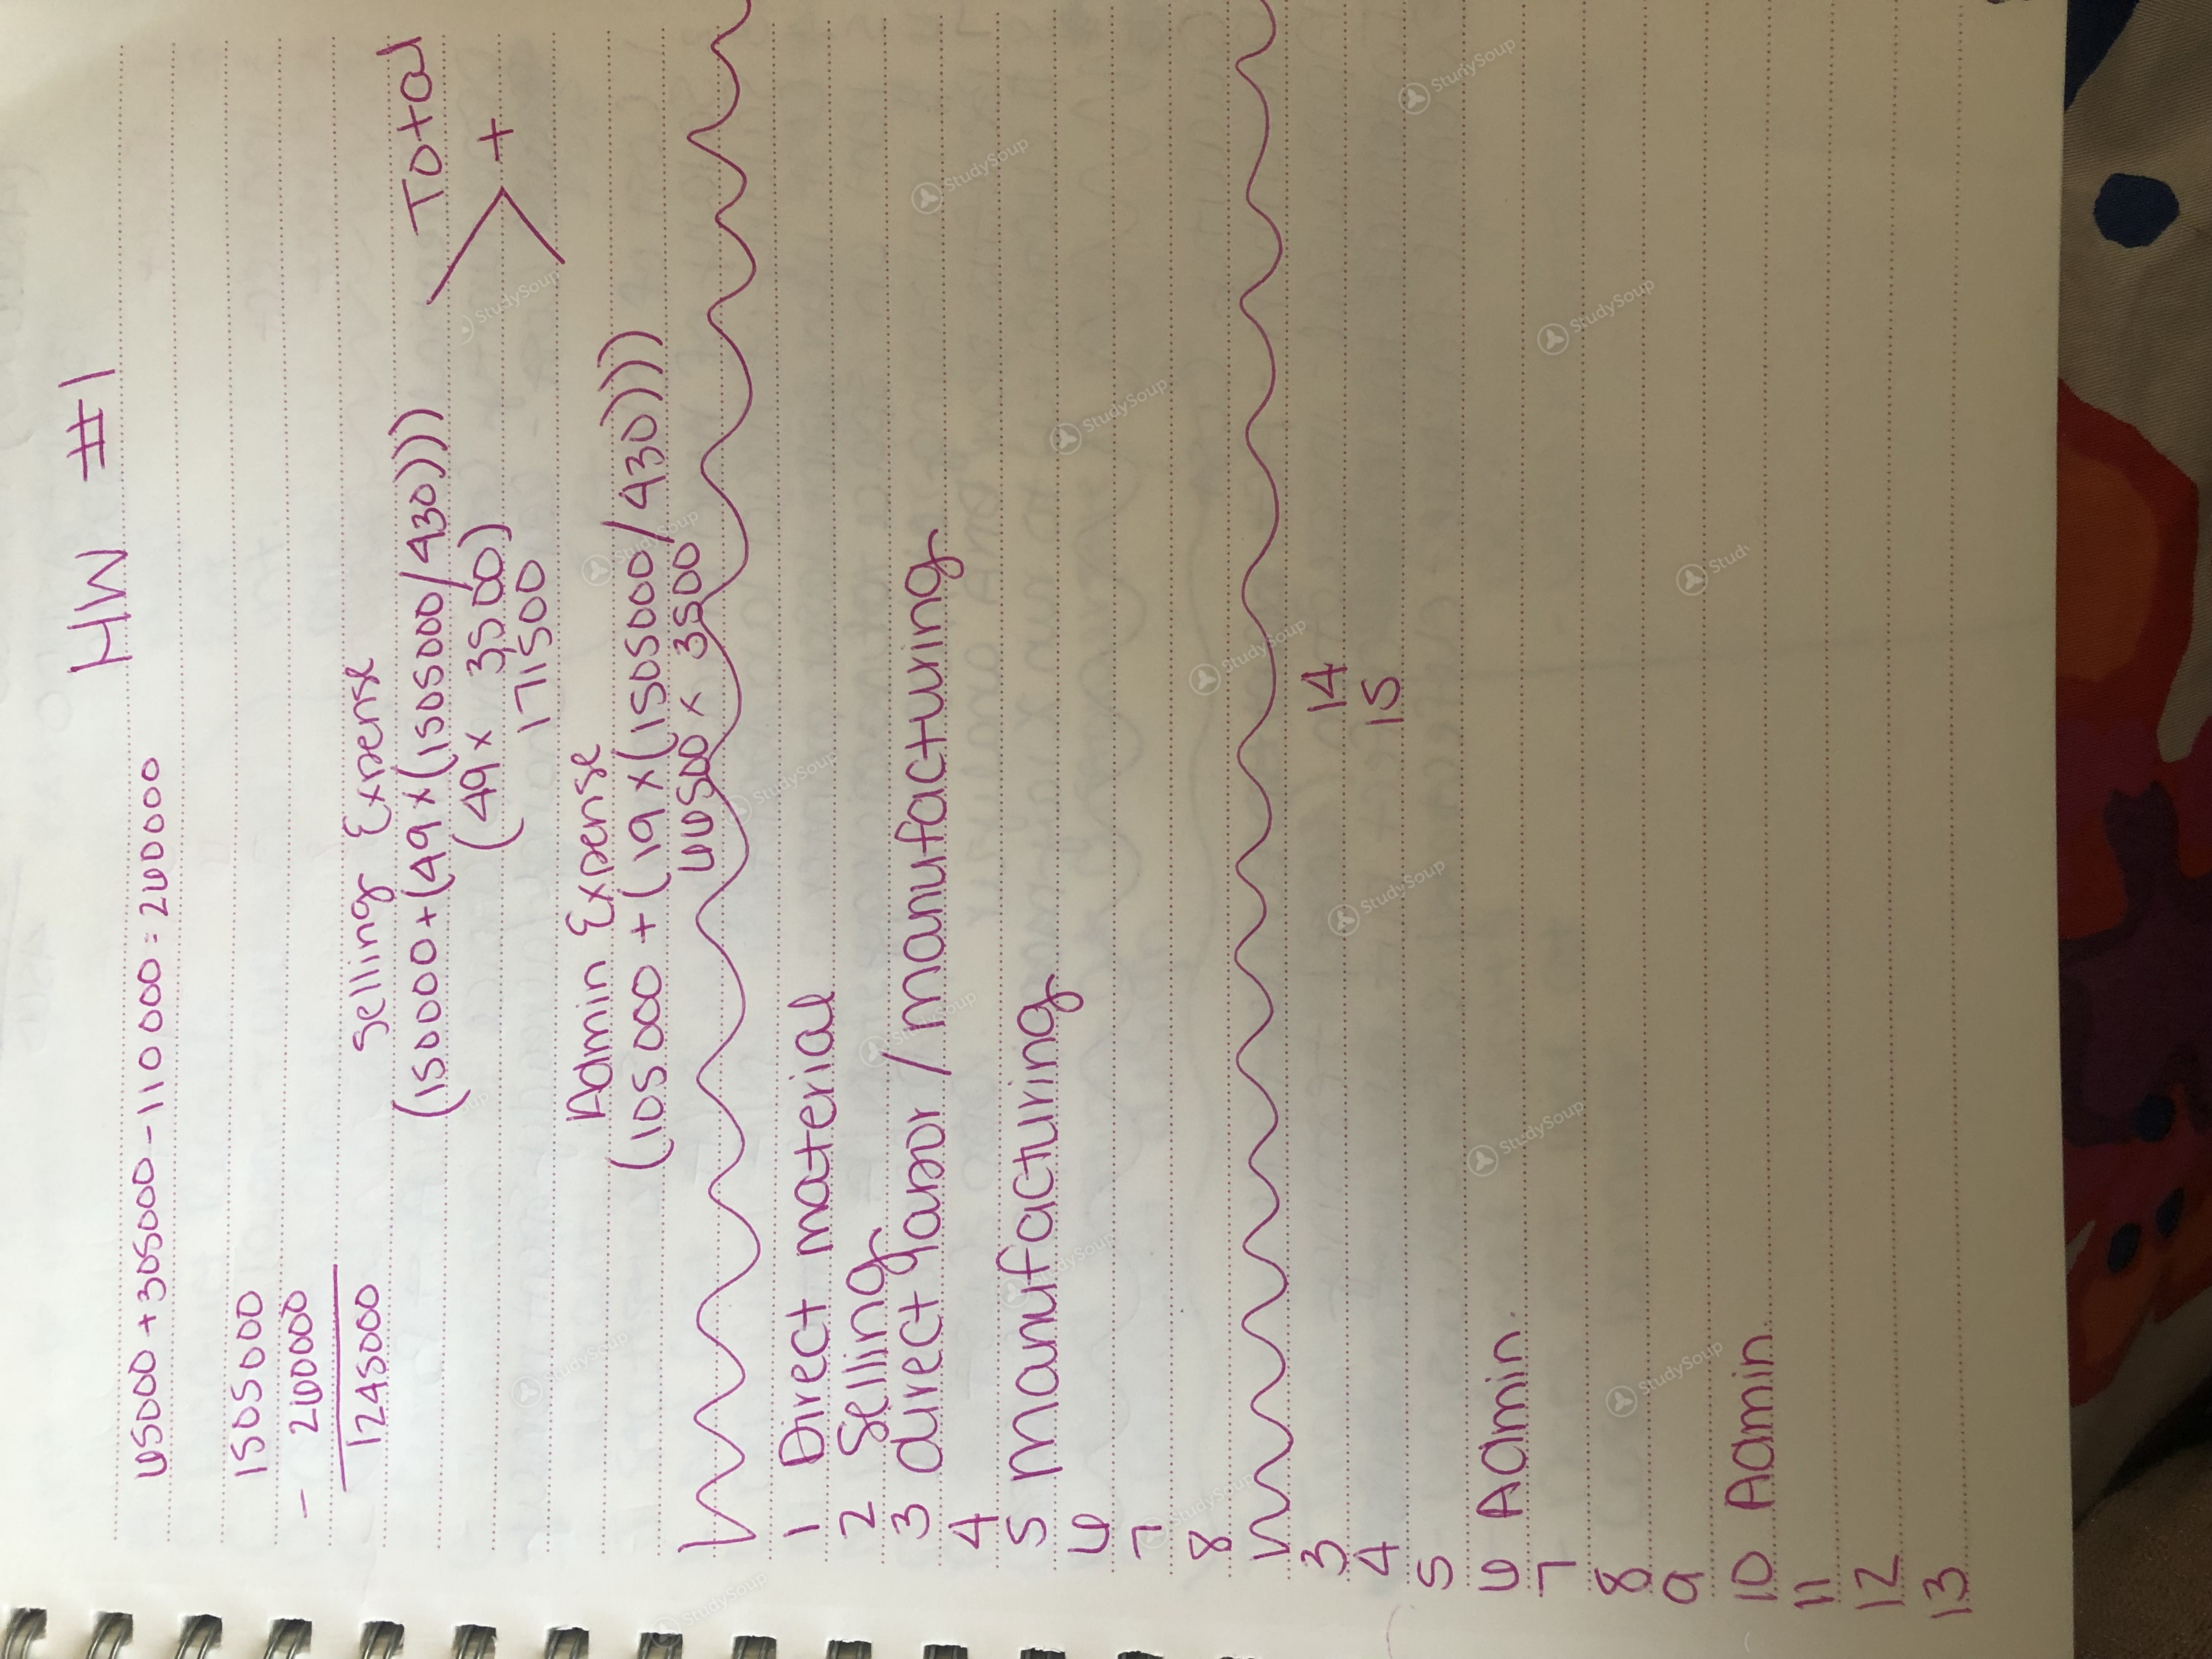 HW #1
65000 + 305000 - 110000 = 260000
1505000
- 260000
1245000
Selling Expense
(150000+(49x(1505000/430)))
(49x 3500)
171500
Total
+
Admin Expense
(105000 +(19x(1505000/430))))
66500 x 3500
1 Direct material
2 Selling
3 direct labor / manufacturing
4
5 manufacturing
6
7
8
3 14
4 15
5
6 Admin.
7
8
9
10 Admin.
11
12
13
StudySoup